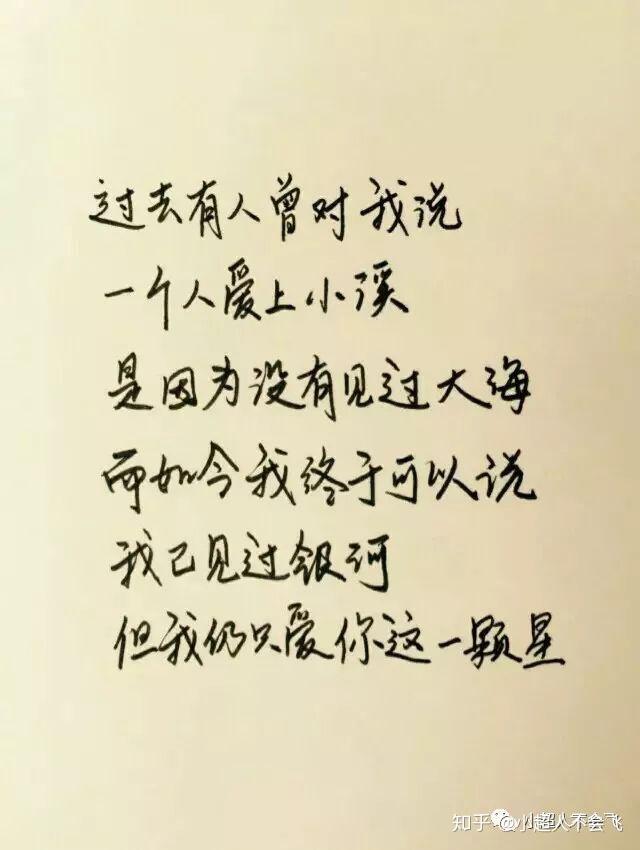 过去有人曾对我说
一个人爱上小溪
是因为没有见过大海
而如今我终于可以说
我已见过银河
但我仍只爱你这一颗星
知乎 @小超人不会飞